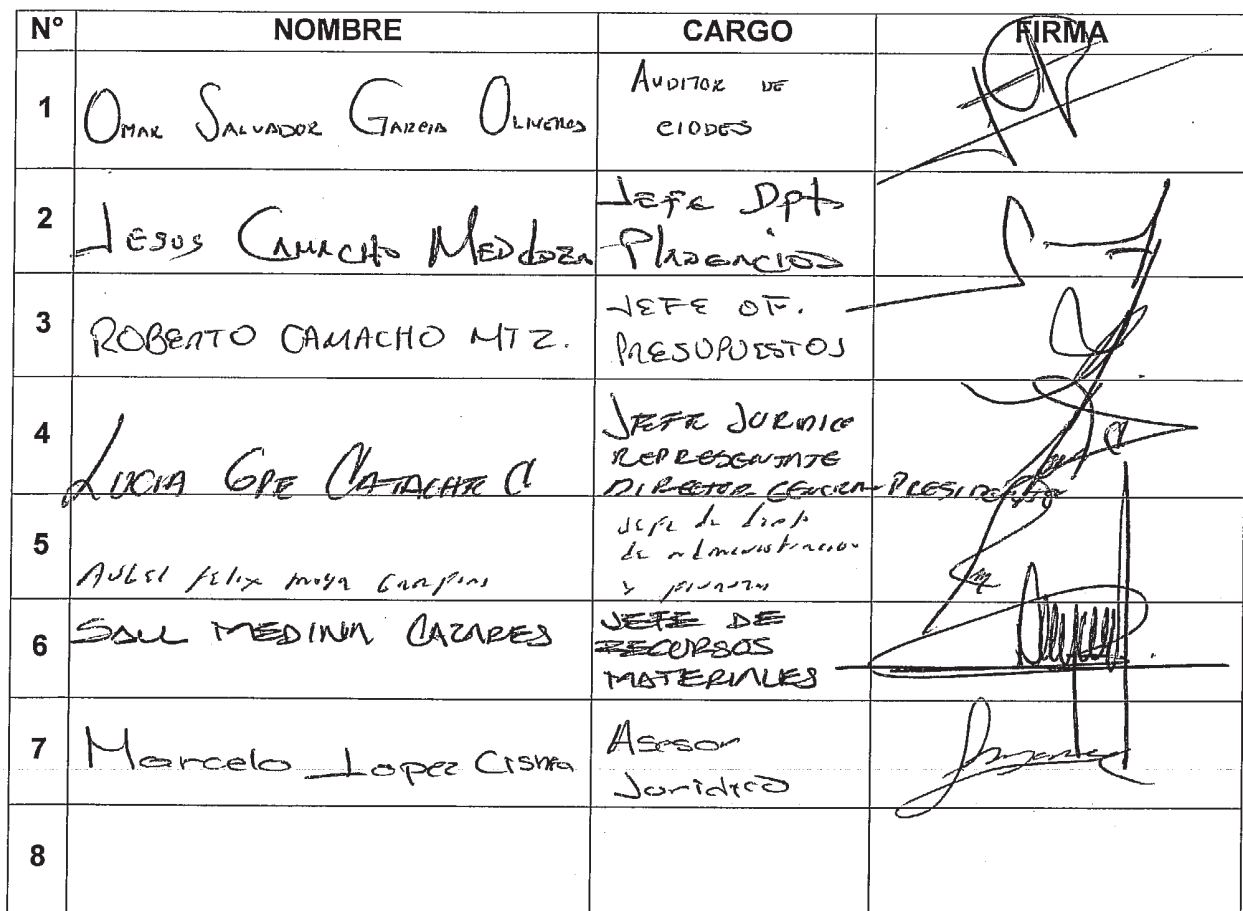 N° NOMBRE CARGO FIRMA
1 OMAR SALVADOR GARCIA OLIVEROS AUDITOR DE
CIODES
2 JESUS CAMACHO MENDOZA Jefe Dpto
3 ROBERTO CAMACHO MTZ. JEFE OF.
PRESUPUESTOS
4 LUCIA GPE C JEFE JURIDICO
REPRESENTATE
DIRECTOR GENERAL PRESIDENTE
5 FELIX MOYA Jefe de dpto
de administracion
y finanzas
6 SAUL MEDINA CAZARES JEFE DE
RECURSOS
MATERIALES
7 Marcelo Lopez Asesor
Juridico
8